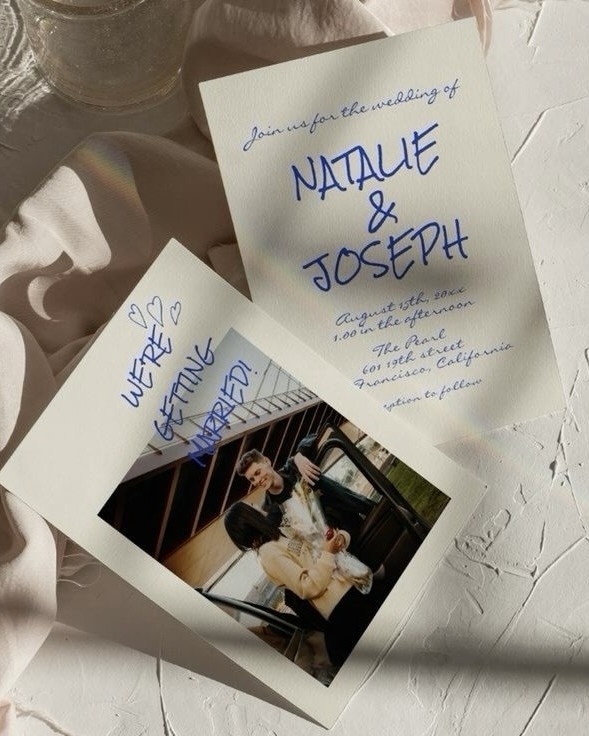 Join us for the wedding of
NATALIE
&
JOSEPH
August 15th, 20xx
1.00 in the afternoon
The Pearl
601 19th street
Francisco, California
to follow
WE'RE
GETTING
MARRIED!